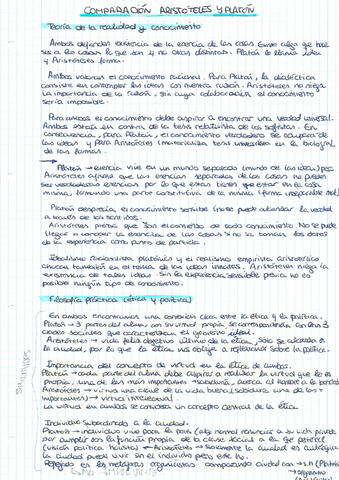 COMPARACIÓN ARISTÓTELES Y PLATÓN
Teoría de la realidad y conocimiento
Ambos defienden existencia de la esencia de las cosas. Existe algo que hace
ser a las cosas lo que son y no otras distintas. Platón le llama idea
y Aristóteles forma.
Ambos valoran el conocimiento racional. Para Platón, la dialéctica
consiste en contemplar las ideas con nuestra razón. Aristóteles no niega
la importancia de la razón, sin cuya colaboración el conocimiento
sería imposible.
Para ambos el conocimiento debe aspirar a encontrar una verdad universal.
Ambos están en contra de la tesis relativista de los sofistas. En
consecuencia, para Platón el conocimiento verdadero se ocupara de
las ideas y para Aristóteles
de las formas.
Platón → esencia vive en un mundo separado (mundo de las ideas) pero
Aristóteles afirma que las esencias separadas de las cosas no pueden
ser verdaderas esencias por lo que estas tienen que estar en la cosa
misma, formando una parte constitutiva de la misma
Platón desprecia el conocimiento sensible (no se puede alcanzar la verdad
a través de los sentidos).
Aristóteles piensa que son el comienzo de todo conocimiento. No se puede
llegar a conocer la esencia de las cosas si no se toman los datos
de la experiencia como punto de partida.
Idealismo racionalista platónico y el realismo empirista aristotélico
chocan también en el tema de las ideas innatas. Aristóteles niega la
existencia de tales ideas. Sin la experiencia sensible previa no es
posible ningún tipo de conocimiento.
Filosofía práctica (ética y política)
En ambos encontramos una conexión clara entre la ética y la política.
Platón → 3 partes del alma con su virtud propia, se corresponden con las 3
clases sociales que caracterizan el ejercicio ideal.
Aristóteles → vida feliz objetivo último de la ética, sólo se alcanza en
la ciudad, por lo que la ética nos obliga a reflexionar sobre la política.
Importancia del concepto de virtud en la ética de ambos.
Platón → cada parte del alma debe aspirar a realizar la virtud que le es
propia, una de las más importantes → sabiduría, acerca al hombre a la
Aristóteles → virtud una clave de la vida buena (sabiduría, una de las +
importantes) → virtud intelectual.
La virtud en ambos se considera un concepto central de la ética
Individuo subordinado a la ciudad.
Platón → individuo vive para la polis
por cumplir con la función propia de la clase social a la que pertenece
(visión política holista) ← Aristóteles → Solamente la ciudad es autárquica
la ciudad puede vivir sin el individuo pero este no.
Reflejado en las metáforas organicistas comparando ciudad con → S.H (Platón)